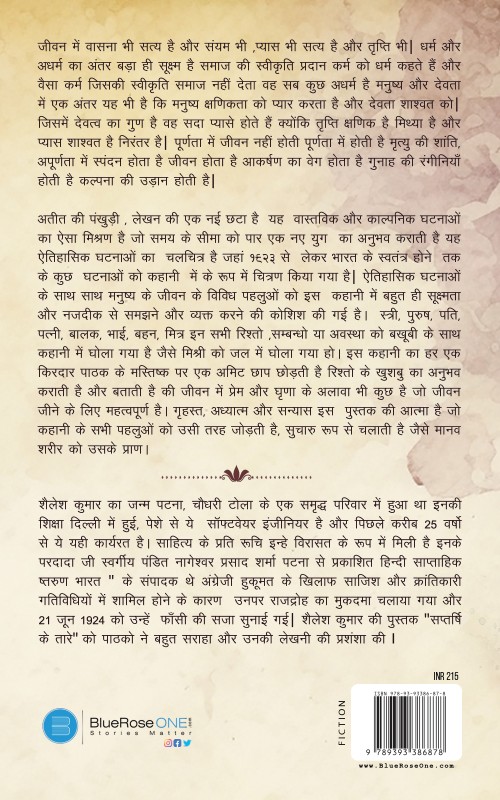 जीवन में वासना भी सत्य है और संयम भी ,प्यास भी सत्य है और तृप्ति भी| धर्म और
अधर्म का अंतर बड़ा ही सूक्ष्म है समाज की स्वीकृति प्रदान कर्म को धर्म कहते हैं और
वैसा कर्म जिसकी स्वीकृति समाज नहीं देता वह सब कुछ अधर्म है मनुष्य और देवता
में एक अंतर यह भी है कि मनुष्य क्षणिकता को प्यार करता है और देवता शाश्वत को|
जिसमें देवत्व का गुण है वह सदा प्यासे होते हैं क्योंकि तृप्ति क्षणिक है मिथ्या है और
प्यास शाश्वत है निरंतर है| पूर्णता में जीवन नहीं होती पूर्णता में होती है मृत्यु की शांति,
अपूर्णता में स्पंदन होता है जीवन होता है आकर्षण का वेग होता है गुनाह की रंगीनियाँ
होती है कल्पना की उड़ान होती है|
अतीत की पंखुड़ी , लेखन की एक नई छटा है यह वास्तविक और काल्पनिक घटनाओं
का ऐसा मिश्रण है जो समय के सीमा को पार एक नए युग का अनुभव कराती है यह
ऐतिहासिक घटनाओं का चलचित्र है जहां १९२३ से लेकर भारत के स्वतंत्र होने तक
के कुछ घटनाओं को कहानी में के रूप में चित्रण किया गया है| ऐतिहासिक घटनाओं
के साथ साथ मनुष्य के जीवन के विविध पहलुओं को इस कहानी में बहुत ही सूक्ष्मता
और नजदीक से समझने और व्यक्त करने की कोशिश की गई है। स्त्री, पुरुष, पति,
पत्नी, बालक, भाई, बहन, मित्र इन सभी रिश्तो ,सम्बन्धो या अवस्था को बखूबी के साथ
कहानी में घोला गया है जैसे मिश्री को जल में घोला गया हो। इस कहानी का हर एक
किरदार पाठक के मस्तिष्क पर एक अमिट छाप छोड़ती है रिश्तो के खुशबु का अनुभव
कराती है और बताती है की जीवन में प्रेम और घृणा के अलावा भी कुछ है जो जीवन
जीने के लिए महत्वपूर्ण है। गृहस्त, अध्यात्म और सन्यास इस पुस्तक की आत्मा है जो
कहानी के सभी पहलुओं को उसी तरह जोड़ती है, सुचारु रूप से चलाती है जैसे मानव
शरीर को उसके प्राण।
शैलेश कुमार का जन्म पटना, चौधरी टोला के एक समृद्ध परिवार में हुआ था इनकी
शिक्षा दिल्ली में हुई, पेशे से ये सॉफ्टवेयर इंजीनियर है और पिछले करीब 25 वर्षो
से ये यही कार्यरत है। साहित्य के प्रति रूचि इन्हे विरासत के रूप में मिली है इनके
परदादा जी स्वर्गीय पंडित नागेश्वर प्रसाद शर्मा पटना से प्रकाशित हिन्दी साप्ताहिक
ष्तरुण भारत " के संपादक थे अंग्रेजी हुकूमत के खिलाफ साजिश और क्रांतिकारी
गतिविधियों में शामिल होने के कारण उनपर राजद्रोह का मुकदमा चलाया गया और
21 जून 1924 को उन्हें फाँसी की सजा सुनाई गई| शैलेश कुमार की पुस्तक "सप्तर्षि
के तारे" को पाठको ने बहुत सराहा और उनकी लेखनी की प्रशंशा की ।
INR 215
FICTION
ISBN 978-93-93386-87-8
9 789393 386878
www.BlueRoseOne.com
B
BlueRoseONE.com
Stories Matter